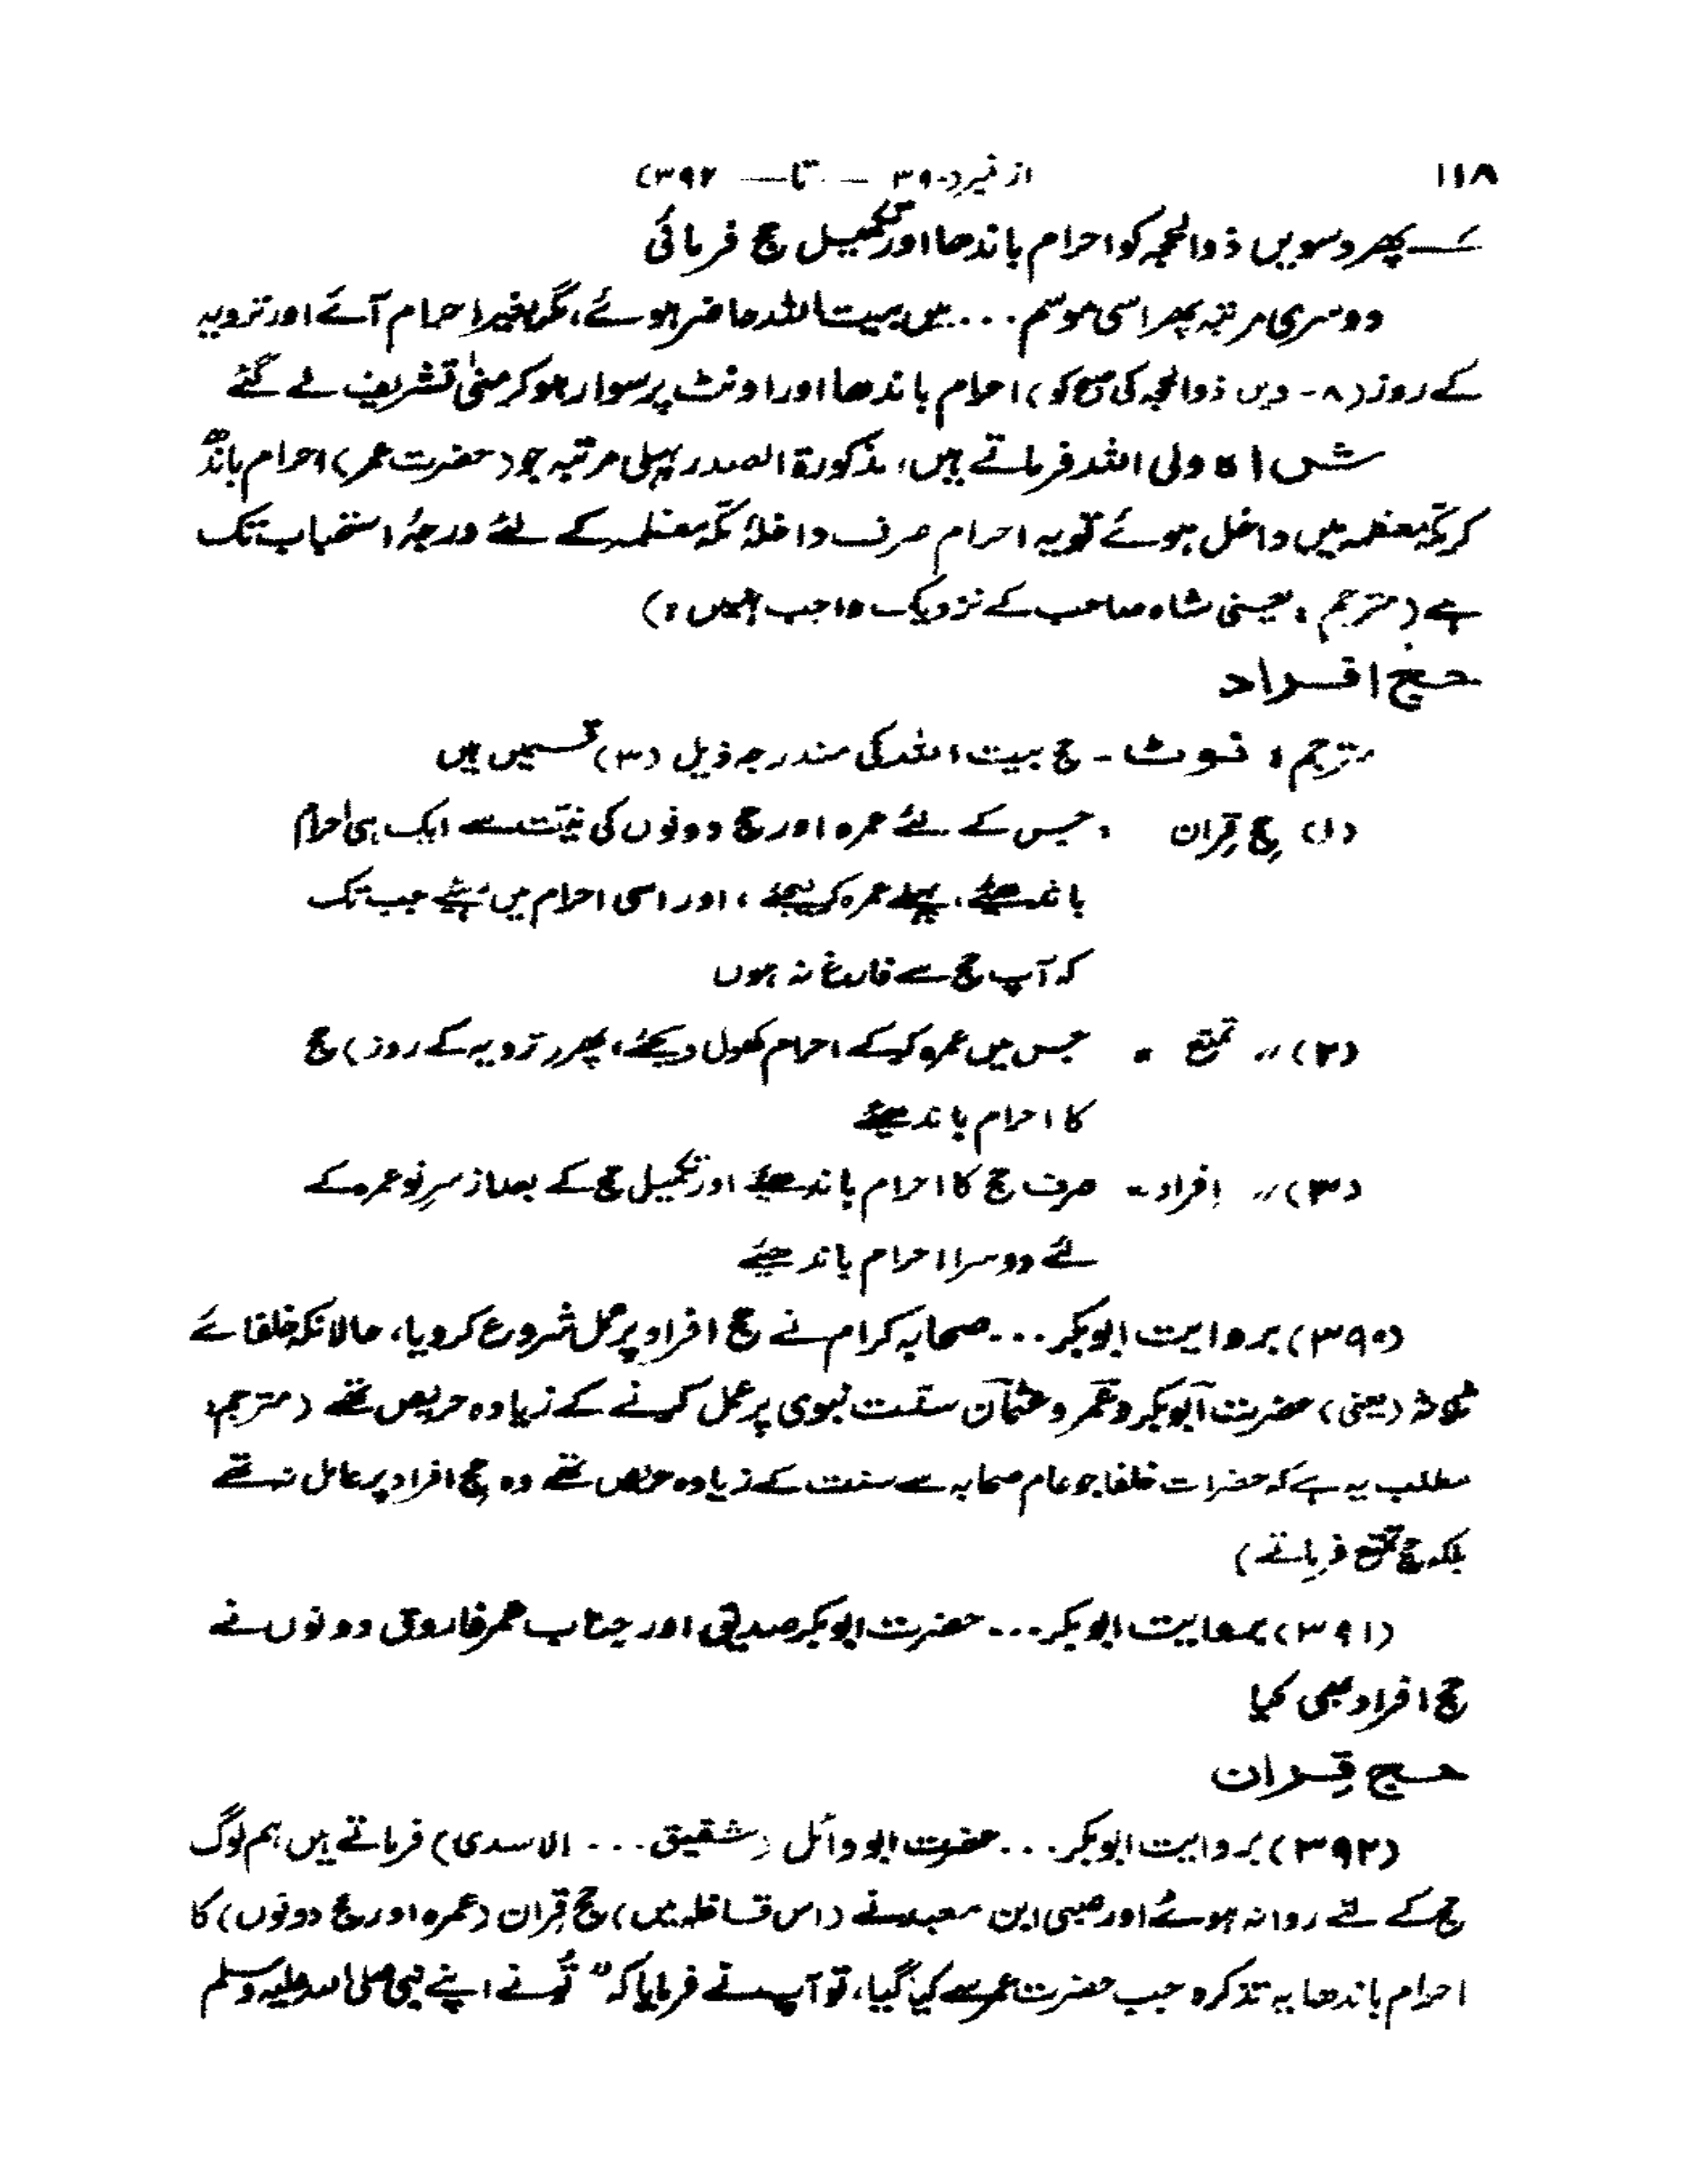 ۱۱۸ از نمبر (۳۹۰ — تا — ۳۹۲)
کے پھر دسویں ذوالحجہ کو احرام باندھا اور تکمیل حج فرمائی
دوسری مرتبہ پھر اسی موسم ... میں بیت اللہ حاضر ہوئے، مگر بغیر احرام آئے اور ترویہ
کے روز (۸ - ویں ذوالحجہ کی صبح کو) احرام باندھا اور اونٹ پر سوار ہو کر منیٰ تشریف لے گئے
شاہ ولی اللہ فرماتے ہیں، مذکورۃ الصدر پہلی مرتبہ جو (حضرت عمر) احرام باندھ
کر مکہ معظمہ میں داخل ہوئے تو یہ احرام صرف داخلۂ مکہ معظمہ کے لئے درجۂ استحباب تک
ہے (مترجم: یعنی شاہ صاحب کے نزدیک واجب نہیں:)
حج افراد
مترجم: نوٹ - حج بیت اللہ کی مندرجہ ذیل (۳) قسمیں ہیں
(۱) حجِ قِران : جس کے لئے عمرہ اور حج دونوں کی نیّت سے ایک ہی احرام
باندھیئے، پہلے عمرہ کر لیجئے، اور اسی احرام میں رہئیے جب تک
کہ آپ حج سے فارغ نہ ہوں
(۲) 〃 تمتع : جس میں عمرہ کر کے احرام کھول دیجئے، پھر (ترویہ کے روز) حج
کا احرام باندھیئے
(۳) 〃 اِفراد - صرف حج کا احرام باندھیئے اور تکمیل حج کے بعد از سرِ نو عمرہ کے
لئے دوسرا احرام باندھیئے
(۳۹۰) بروایت ابوبکر ... صحابہ کرام نے حج افراد پر عمل شروع کر دیا، حالانکہ خلفائے
ثلاثہ (یعنی) حضرت ابوبکر و عمر و عثمان سنت نبوی پر عمل کرنے کے زیادہ حریص تھے (مترجم:
مطلب یہ ہے کہ حضرات خلفا جو عام صحابہ سے سنت کے زیادہ حریص تھے وہ حج افراد پر عامل نہ تھے
بلکہ حج تمتع فرماتے)
(۳۹۱) بروایت ابوبکر ... حضرت ابوبکر صدیق اور جناب عمر فاروق دونوں نے
حج افراد بھی کیا
حج قِران
(۳۹۲) بروایت ابوبکر ... حضرت ابو وائل (شقیق ... الاسدی) فرماتے ہیں ہم لوگ
حج کے لئے روانہ ہوئے اور صبی ابن معبد نے (اس قافلہ میں) حج قِران (عمرہ اور حج دونوں) کا
احرام باندھا یہ تذکرہ جب حضرت عمر سے کیا گیا، تو آپ نے فرمایا کہ "تُو نے اپنے نبی صلی اللہ علیہ وسلم